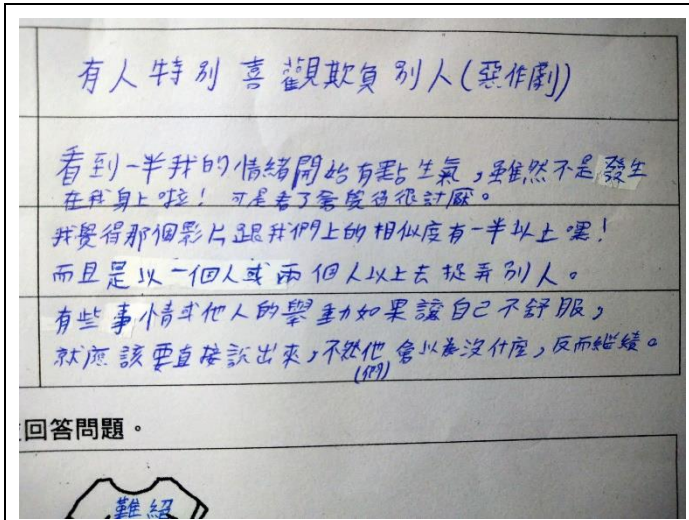 有人特別喜觀欺負別人(惡作劇)
看到一半我的情緒開始有點生氣,雖然不是發生
在我身上啦!可是看了會覺得很討厭。
我覺得那個影片跟我們上的相似度有一半以上嘿!
而且是以一個人或兩個人以上去捉弄別人。
有些事情或他人的舉動如果讓自己不舒服,
就應該要直接說出來,不然他會以為沒什麼,反而繼續。
(們)
回答問題。
難